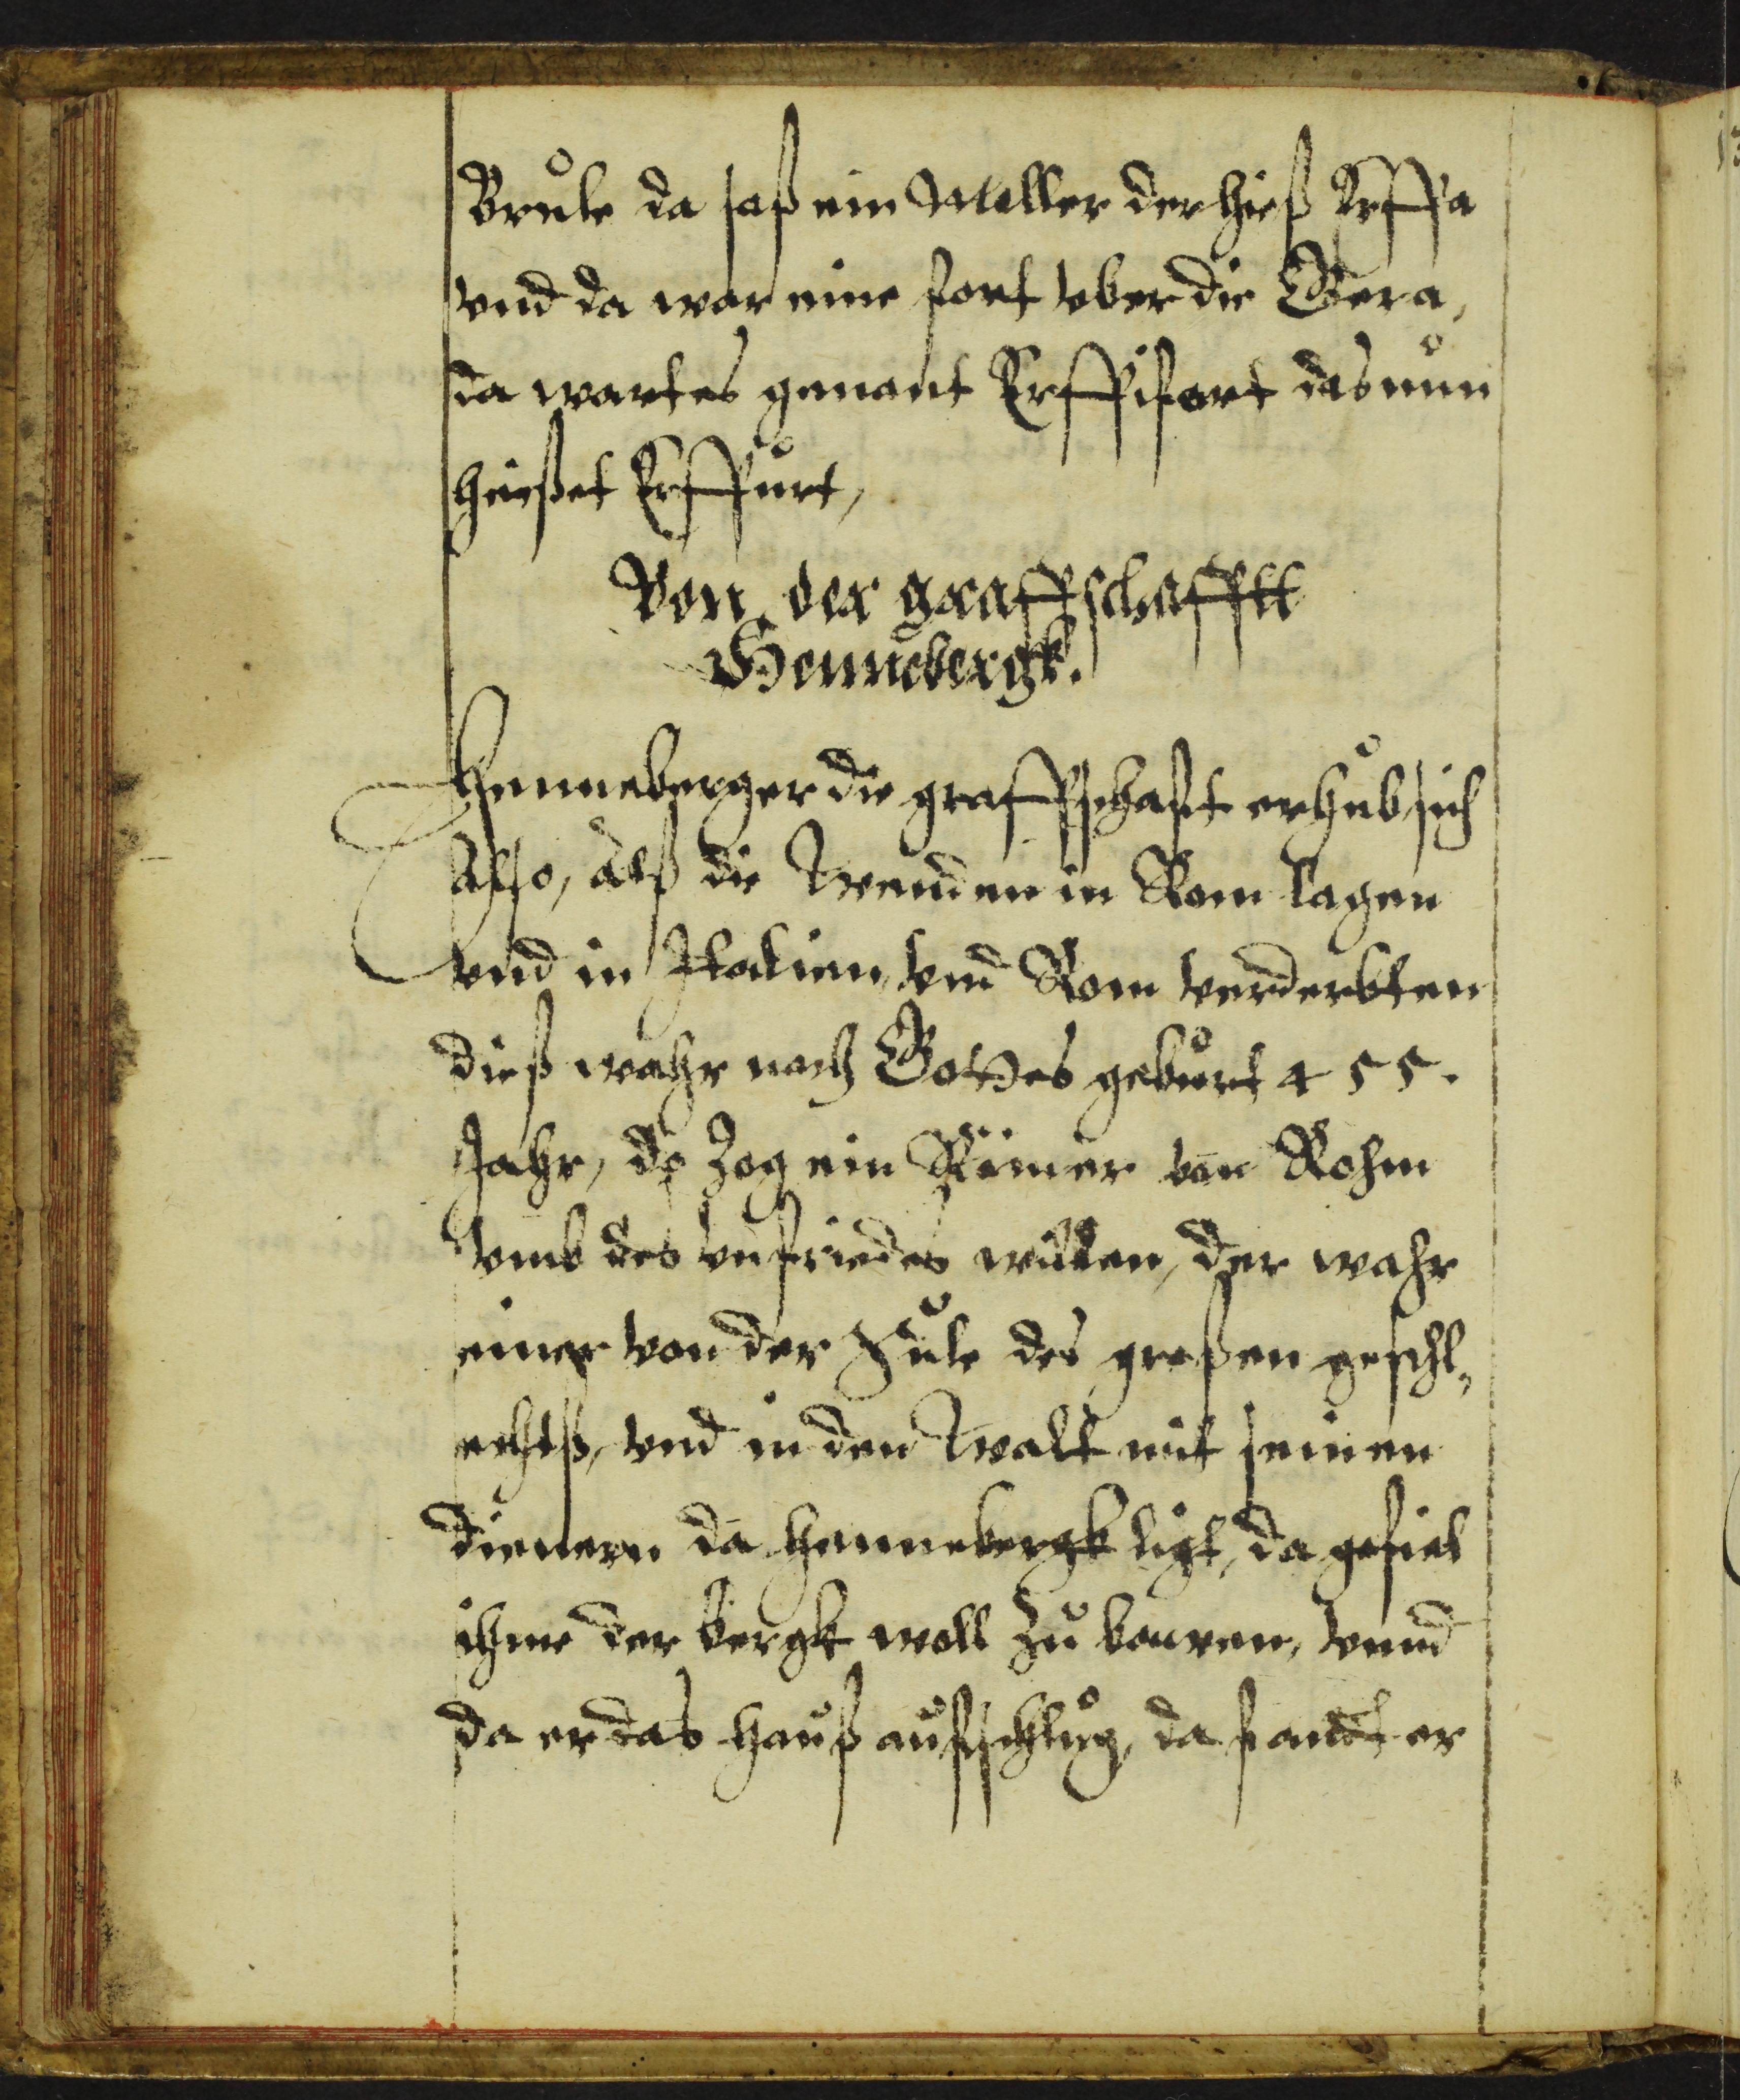 Brůle da saß ein Moller der hieß Erffa
vnd da war eine fort vber die Gera,
da wart es genant Erffisfort das nůn
heißet Erffůrt,
Von der graffschafftt
Hennebergk.
Henneberger die graffschafft erhůb sich
also, alß die Wenden in Rom lagen
vnd in Italien vnd Rom verderbten
dieß wahr nach Gottes gebůrt 455.
Jahr, do zog ein Römer von Rohm
vmb des vnfriedes willen, der wahr
einer von der Sůle des großen geschl„
echtß, vnd in den Walt mit seinen
dienern da Hennebergk ligt, da gefiel
ihme der bergk woll zů bawen, vnnd
da er das Hauß aůfschlůg, da fandt er